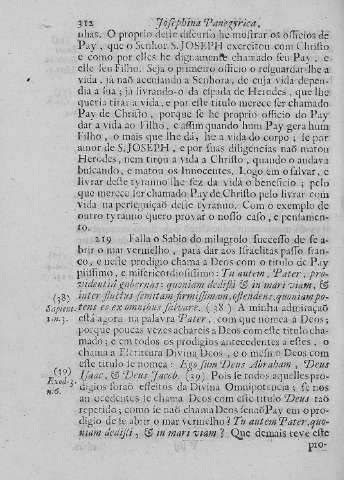 312 Josephina Panegyrica,
nhas. O proprio deste discurso he mostrar os officios de
Pay, que o Senhor S. JOSEPH exercitou com Christo
e como por elles he dignamente chamado seu Pay, e
elle seu Filho. Seja o primeiro officio o resguardar-lhe a
vida, ja naõ accusando a Senhora, de cuja vida depen-
dia a sua; ja livrando-o da espada de Herodes, que lhe
queria tirar a vida, e por este titulo merece ser chamado
Pay de Christo, porque se he proprio officio do Pay
dar a vida ao Filho, e assim quando hum Pay gera hum
Filho, o mais que lhe dá, he a vida do corpo; se por
amor de S. JOSEPH, e por suas diligencias naõ matou
Herodes, nem tirou a vida a Christo, quando o andava
buscando, e matou os Innocentes. Logo em o salvar, e
livrar deste tyranno lhe fez da vida o beneficio; pelo
que merece ser chamado Pay de Christo pelo livrar com
vida na perseguiçaõ deste tyranno. Com o exemplo de
outro tyranno quero provar o nosso caso, e pensamen-
to.
219 Falla o Sabio do milagroso successo de se a-
brir o mar vermelho, para dar aos Israelitas passo fran-
co, e neste prodigio chama a Deos com o titulo de Pay
piissimo, e misericordiosissimo: Tu autem, Pater, pro-
videntiâ gubernas: quoniam dedisti & in mari viam, &
inter fluctus semitam firmissimam, ostendens, quoniam po-
tens es ex omnibus salvare. (38) A minha admiraçaõ
está agora na palavra Pater, com que nomea a Deos;
porque poucas vezes achareis a Deos com este titulo cha-
mado; e em todos os prodigios antecedentes a estes, o
chama a Escritura Divina Deos, e o mesmo Deos com
este titulo se nomea: Ego sum Deus Abraham, Deus
Isaac, & Deus Jacob. (39) Pois se todos aquelles pro-
digios foraõ effeitos da Divina Omnipotencia, se nos
antecedentes se chama Deos com este titulo Deus taõ
repetido; como se naõ chama Deos senaõ Pay em o pro-
digio de se abrir o mar vermelho? Tu autem Pater, quo-
niam dedisti, & in mari viam? Que demais teve este
pro-
(38)
Sapient.
14n.3.
(39)
Exod.3.
n.6.